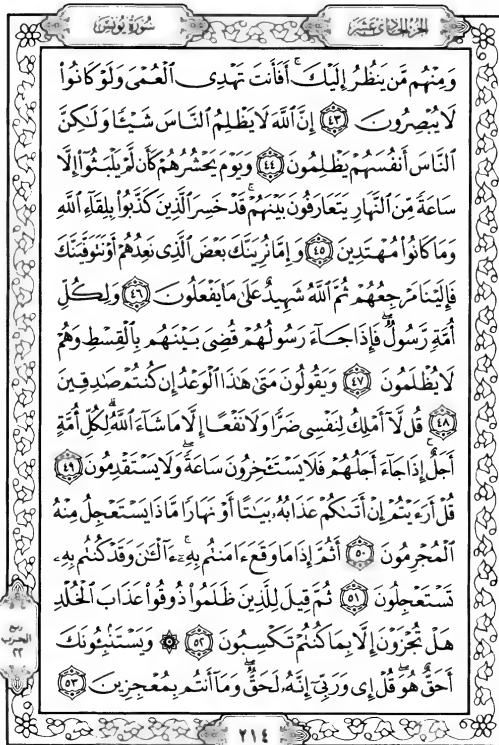 سورة يونس
الجزء الحادي عشر
وَمِنْهُم مَّن يَنظُرُ إِلَيْكَ ۚ أَفَأَنتَ تَهْدِى الْعُمْىَ وَلَوْ كَانُوا۟
لَا يُبْصِرُونَ ٤٣ إِنَّ اللَّهَ لَا يَظْلِمُ النَّاسَ شَيْـًٔا وَلَٰكِنَّ
النَّاسَ أَنفُسَهُمْ يَظْلِمُونَ ٤٤ وَيَوْمَ يَحْشُرُهُمْ كَأَن لَّمْ يَلْبَثُوٓا۟ إِلَّا
سَاعَةً مِّنَ النَّهَارِ يَتَعَارَفُونَ بَيْنَهُمْ ۚ قَدْ خَسِرَ الَّذِينَ كَذَّبُوا۟ بِلِقَآءِ اللَّهِ
وَمَا كَانُوا۟ مُهْتَدِينَ ٤٥ وَإِمَّا نُرِيَنَّكَ بَعْضَ الَّذِى نَعِدُهُمْ أَوْ نَتَوَفَّيَنَّكَ
فَإِلَيْنَا مَرْجِعُهُمْ ثُمَّ اللَّهُ شَهِيدٌ عَلَىٰ مَا يَفْعَلُونَ ٤٦ وَلِكُلِّ
أُمَّةٍ رَّسُولٌ ۖ فَإِذَا جَآءَ رَسُولُهُمْ قُضِىَ بَيْنَهُم بِالْقِسْطِ وَهُمْ
لَا يُظْلَمُونَ ٤٧ وَيَقُولُونَ مَتَىٰ هَٰذَا الْوَعْدُ إِن كُنتُمْ صَٰدِقِينَ
٤٨ قُل لَّآ أَمْلِكُ لِنَفْسِى ضَرًّا وَلَا نَفْعًا إِلَّا مَا شَآءَ اللَّهُ ۗ لِكُلِّ أُمَّةٍ
أَجَلٌ ۚ إِذَا جَآءَ أَجَلُهُمْ فَلَا يَسْتَـْٔخِرُونَ سَاعَةً ۖ وَلَا يَسْتَقْدِمُونَ ٤٩
قُلْ أَرَءَيْتُمْ إِنْ أَتَىٰكُمْ عَذَابُهُۥ بَيَٰتًا أَوْ نَهَارًا مَّاذَا يَسْتَعْجِلُ مِنْهُ
الْمُجْرِمُونَ ٥٠ أَثُمَّ إِذَا مَا وَقَعَ ءَامَنتُم بِهِۦٓ ۚ ءَآلْـَٰٔنَ وَقَدْ كُنتُم بِهِۦ
تَسْتَعْجِلُونَ ٥١ ثُمَّ قِيلَ لِلَّذِينَ ظَلَمُوا۟ ذُوقُوا۟ عَذَابَ الْخُلْدِ
هَلْ تُجْزَوْنَ إِلَّا بِمَا كُنتُمْ تَكْسِبُونَ ٥٢ ۞ وَيَسْتَنۢبِـُٔونَكَ
أَحَقٌّ هُوَ ۖ قُلْ إِى وَرَبِّىٓ إِنَّهُۥ لَحَقٌّ ۖ وَمَآ أَنتُم بِمُعْجِزِينَ ٥٣
ربع
الحزب
٢٢
٢١٤